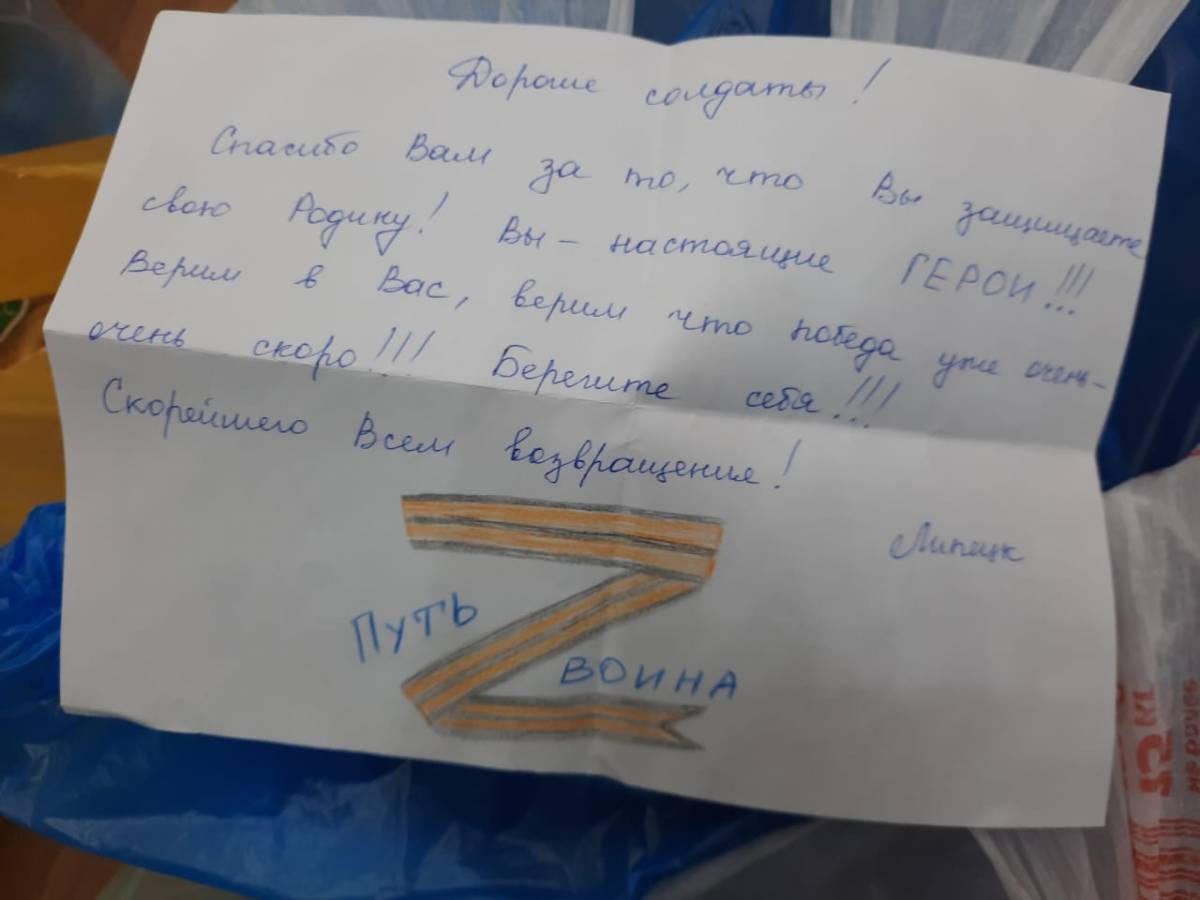 Дорогие солдаты!
Спасибо Вам за то, что Вы защищаете
свою Родину! Вы - настоящие ГЕРОИ!!!
Верим в Вас, верим что победа уже очень-
очень скоро!!! Берегите себя!!!
Скорейшего Всем возвращения!
Липецк
ПУТЬ
ВОИНА